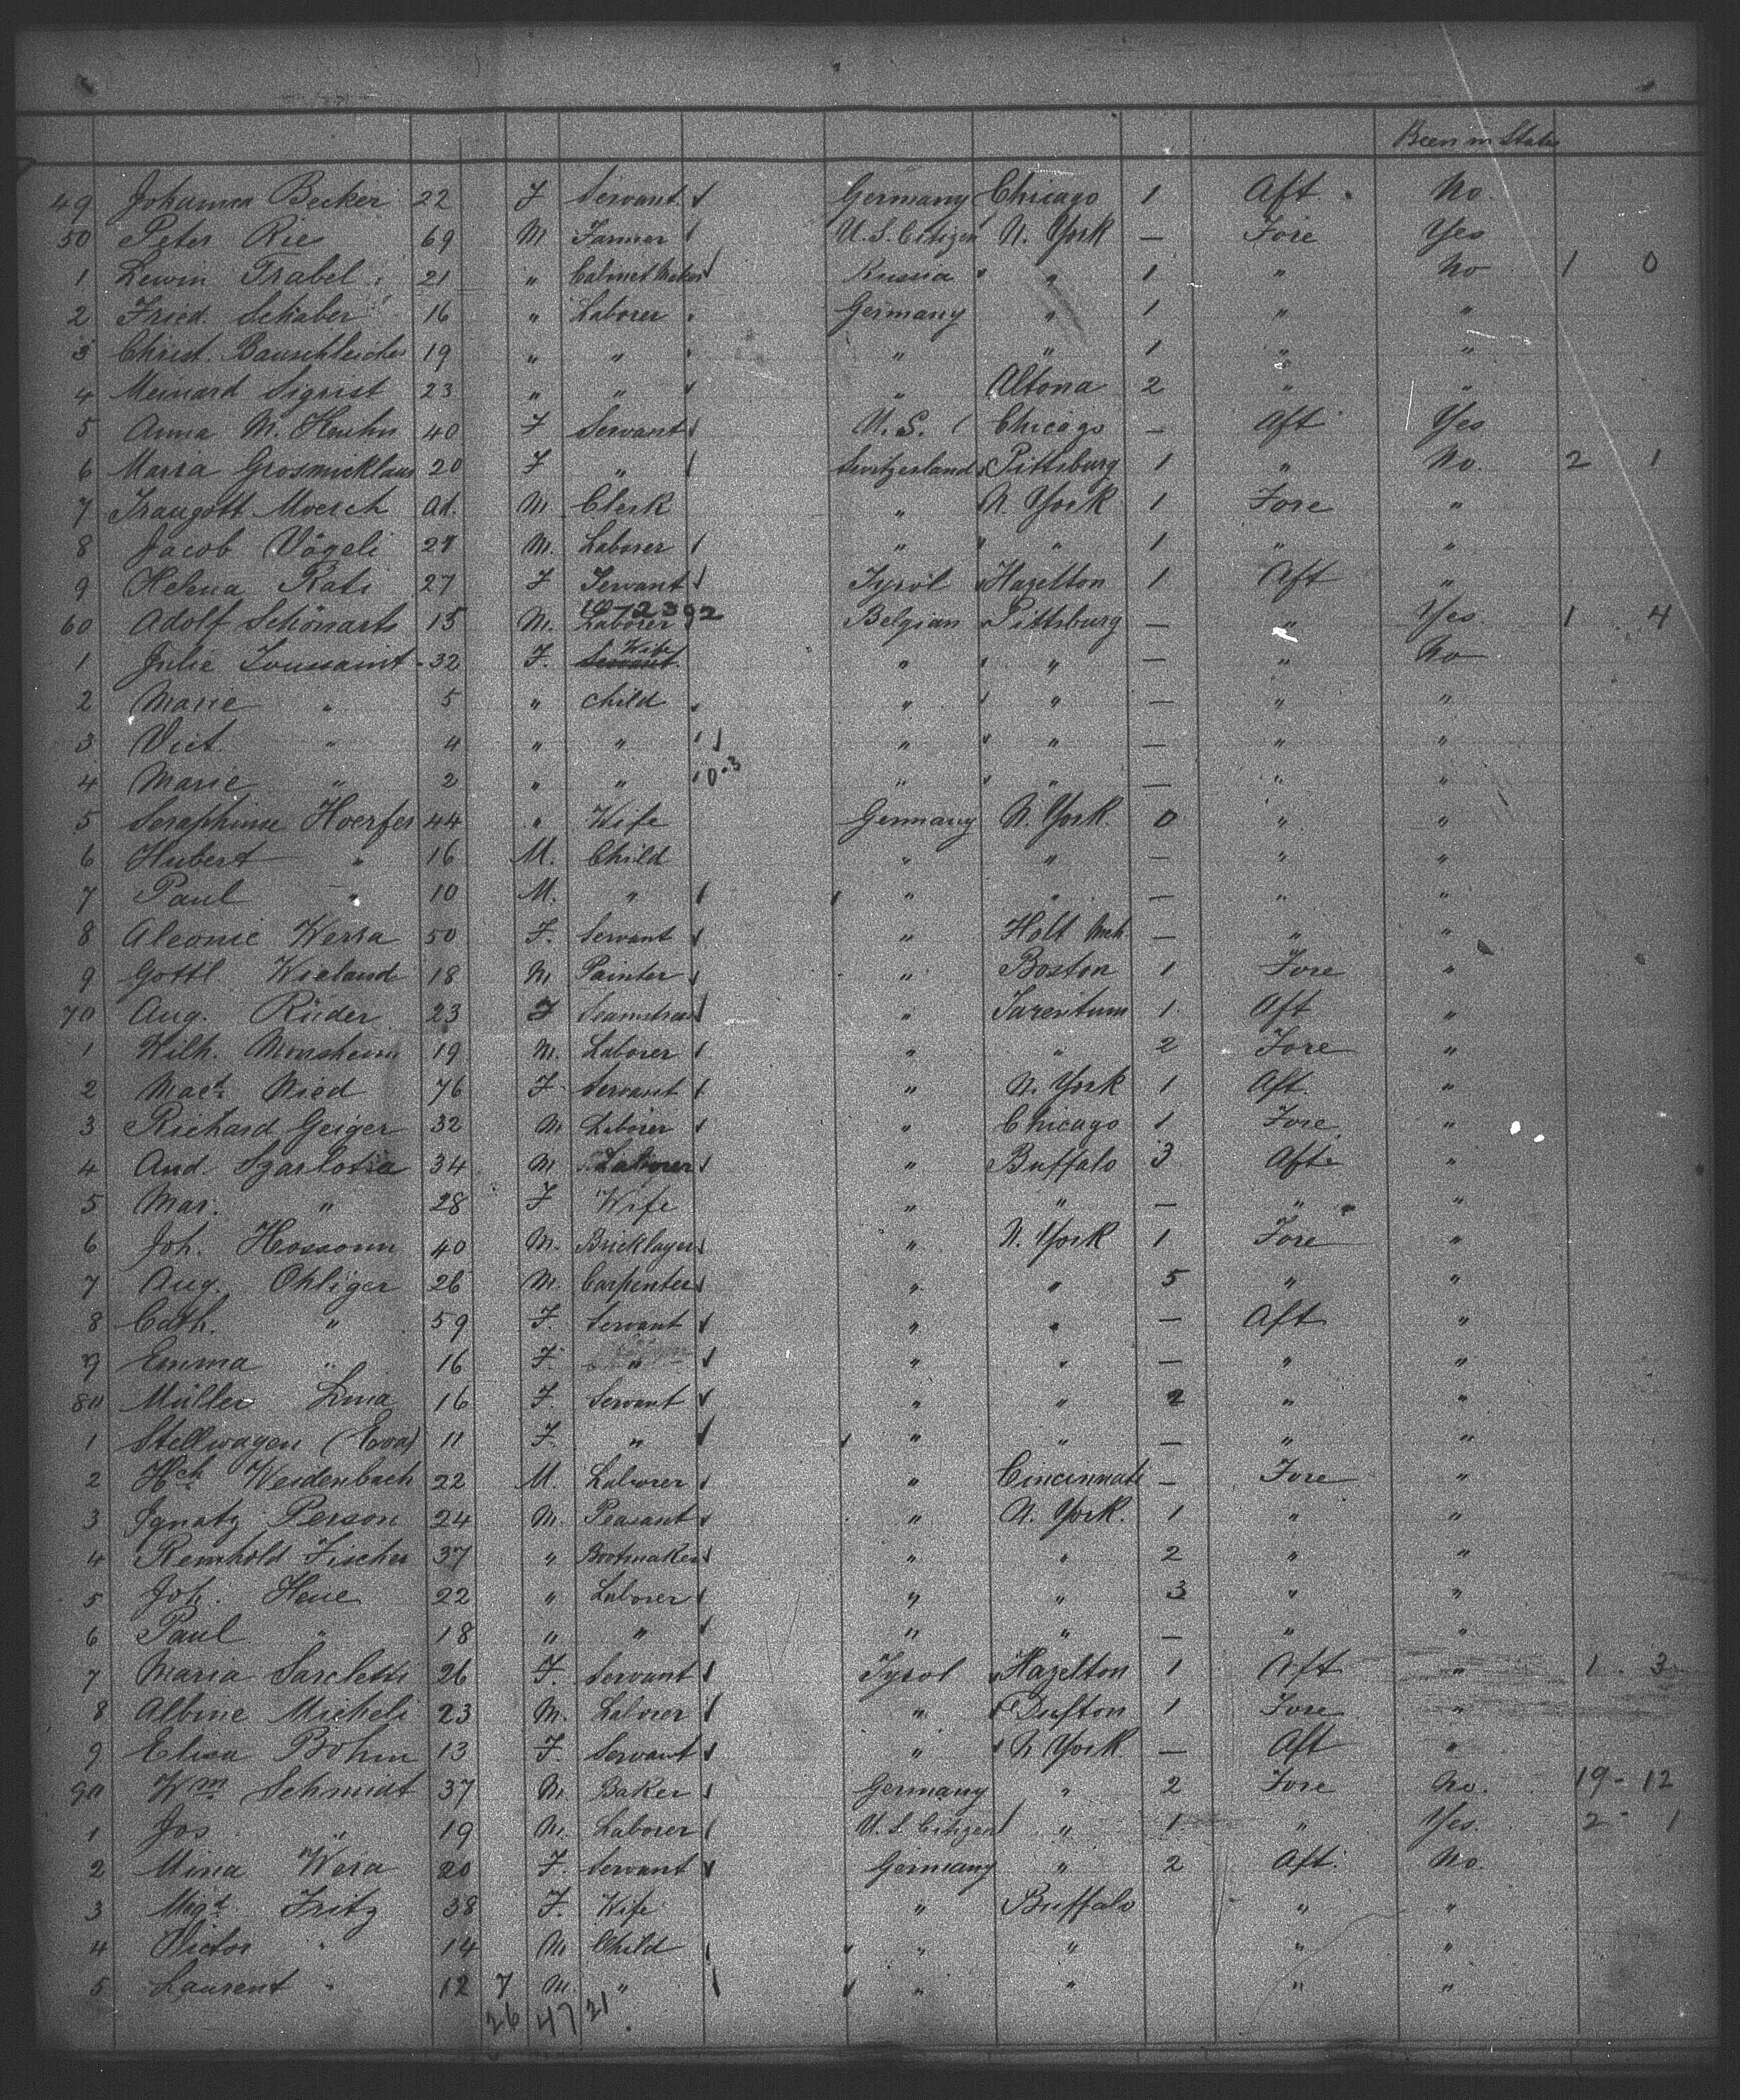 Been in States
49 Johanna Becker 22 F Servant Germany Chicago 1 Aft No.
50 Peter Ries 69 M Farmer U.S. Citizen N. York — Fore Yes
1 Lewin Trabel 21 " Cabinet Maker Russia " 1 " No 1 0
2 Fried. Schaber 16 " Laborer Germany " 1 " "
3 Christ. Bauschleicher 19 " " " " 1 " "
4 Meinard Sigrist 23 " " " Altona 2 " "
5 Anna M. Henhn 40 F Servant U.S. Chicago — Aft Yes
6 Maria Grosmicklaus 20 F " Switzerland Pittsburg 1 " No. 2 1
7 Traugott Moersch ad. M Clerk " N. York 1 Fore "
8 Jacob Vögeli 27 M. Laborer " " 1 " "
9 Helena Rati 27 F Servant Tyrol Hazelton 1 Aft "
60 Adolf Schönarts 15 M. Laborer Belgian Pittsburg — " Yes 1 4
1 Julie Toussaint 32 F. Wife " " — " No
2 Marie " 5 " child " " — " "
3 Vict. " 4 " " " " — " "
4 Marie " 2 " " " " — " "
5 Seraphine Hoerfer 44 " Wife Germany N. York 0 " "
6 Hubert " 16 M. Child " " — " "
7 Paul " 10 M. " " " — " "
8 Aleonie Werra 50 F. Servant " Holt Mch. — " "
9 Gottl. Wieland 18 M Painter " Boston 1 Fore "
70 Aug. Rüder 23 F Seamstress " Tarentum 1 Aft "
1 Wilh. Monsheim 19 M. Laborer " " 2 Fore "
2 Nied 76 F Servant " N. York 1 Aft. "
3 Richard Geiger 32 M Laborer " Chicago 1 Fore "
4 And. Szarlotia 34 M Laborer " Buffalo 3 Aft "
5 Mar. " 28 F Wife " " — " "
6 Joh. Hossonn 40 M. Bricklayer " N. York 1 Fore "
7 Aug. Ohliger 26 M. Carpenter " " 5 " "
8 Cath. " 59 F. Servant " " — Aft "
9 Emma " 16 F. " " " — " "
80 Müller Lina 16 F. Servant " " 2 " "
1 Stellwagen (Eva) 11 F. " " " — " "
2 Hch. Weidenbach 22 M. Laborer " Cincinnati — Fore "
3 Ignatz Person 24 M. Peasant " N. York. 1 " "
4 Reinhold Fischer 37 " Bootmaker " " 2 " "
5 Joh. Hene 22 " Laborer " " 3 " "
6 Paul " 18 " " " " — " "
7 Maria Sarcletti 26 F. Servant Tyrol Hazelton 1 Aft " 1 3
8 Albine Micheli 23 M. Laborer " Dufton 1 Fore "
9 Elisa Böhm 13 F. Servant " N York — Aft "
90 Wm Schmidt 37 M. Baker Germany " 2 Fore No. 19 - 12
1 Jos " 19 M. Laborer U.S. Citizen " 1 " Yes. 2 1
2 Mina Wera 20 F. Servant Germany " 2 Aft. No.
3 Mgt. Fritz 38 F. Wife " Buffalo " "
4 Victor " 14 M Child " " " "
5 Laurent " 12 7 M. " " " " "
26 47 21